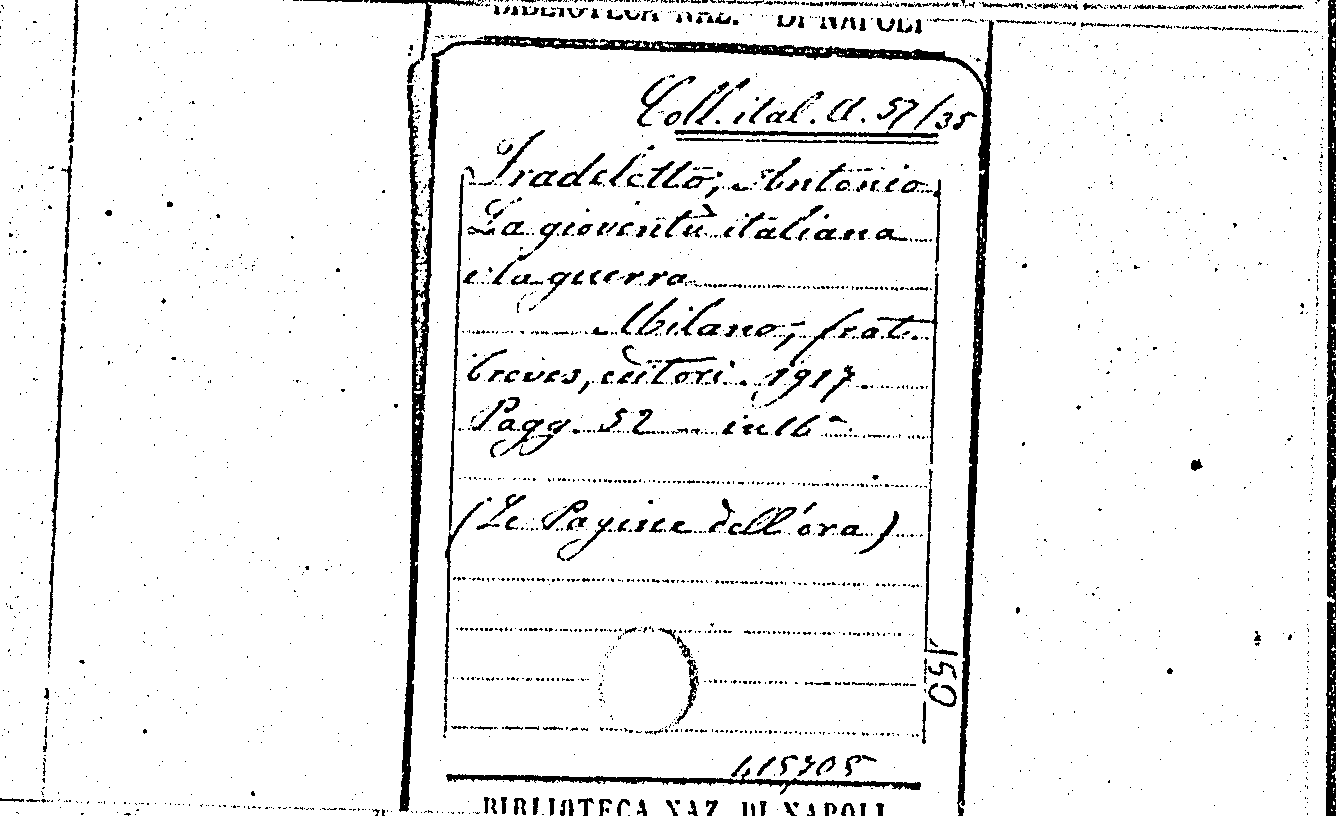 BIBLIOTECA NAZ. DI NAPOLI
Coll. ital. A. 57/35
Fradeletto, Antonio
La gioventù italiana
e la guerra
Milano, frat.
Treves, editori. 1917
Pagg. 52 - in 16°
(Le Pagine dell'ora)
150
415705
BIBLIOTECA NAZ. DI NAPOLI